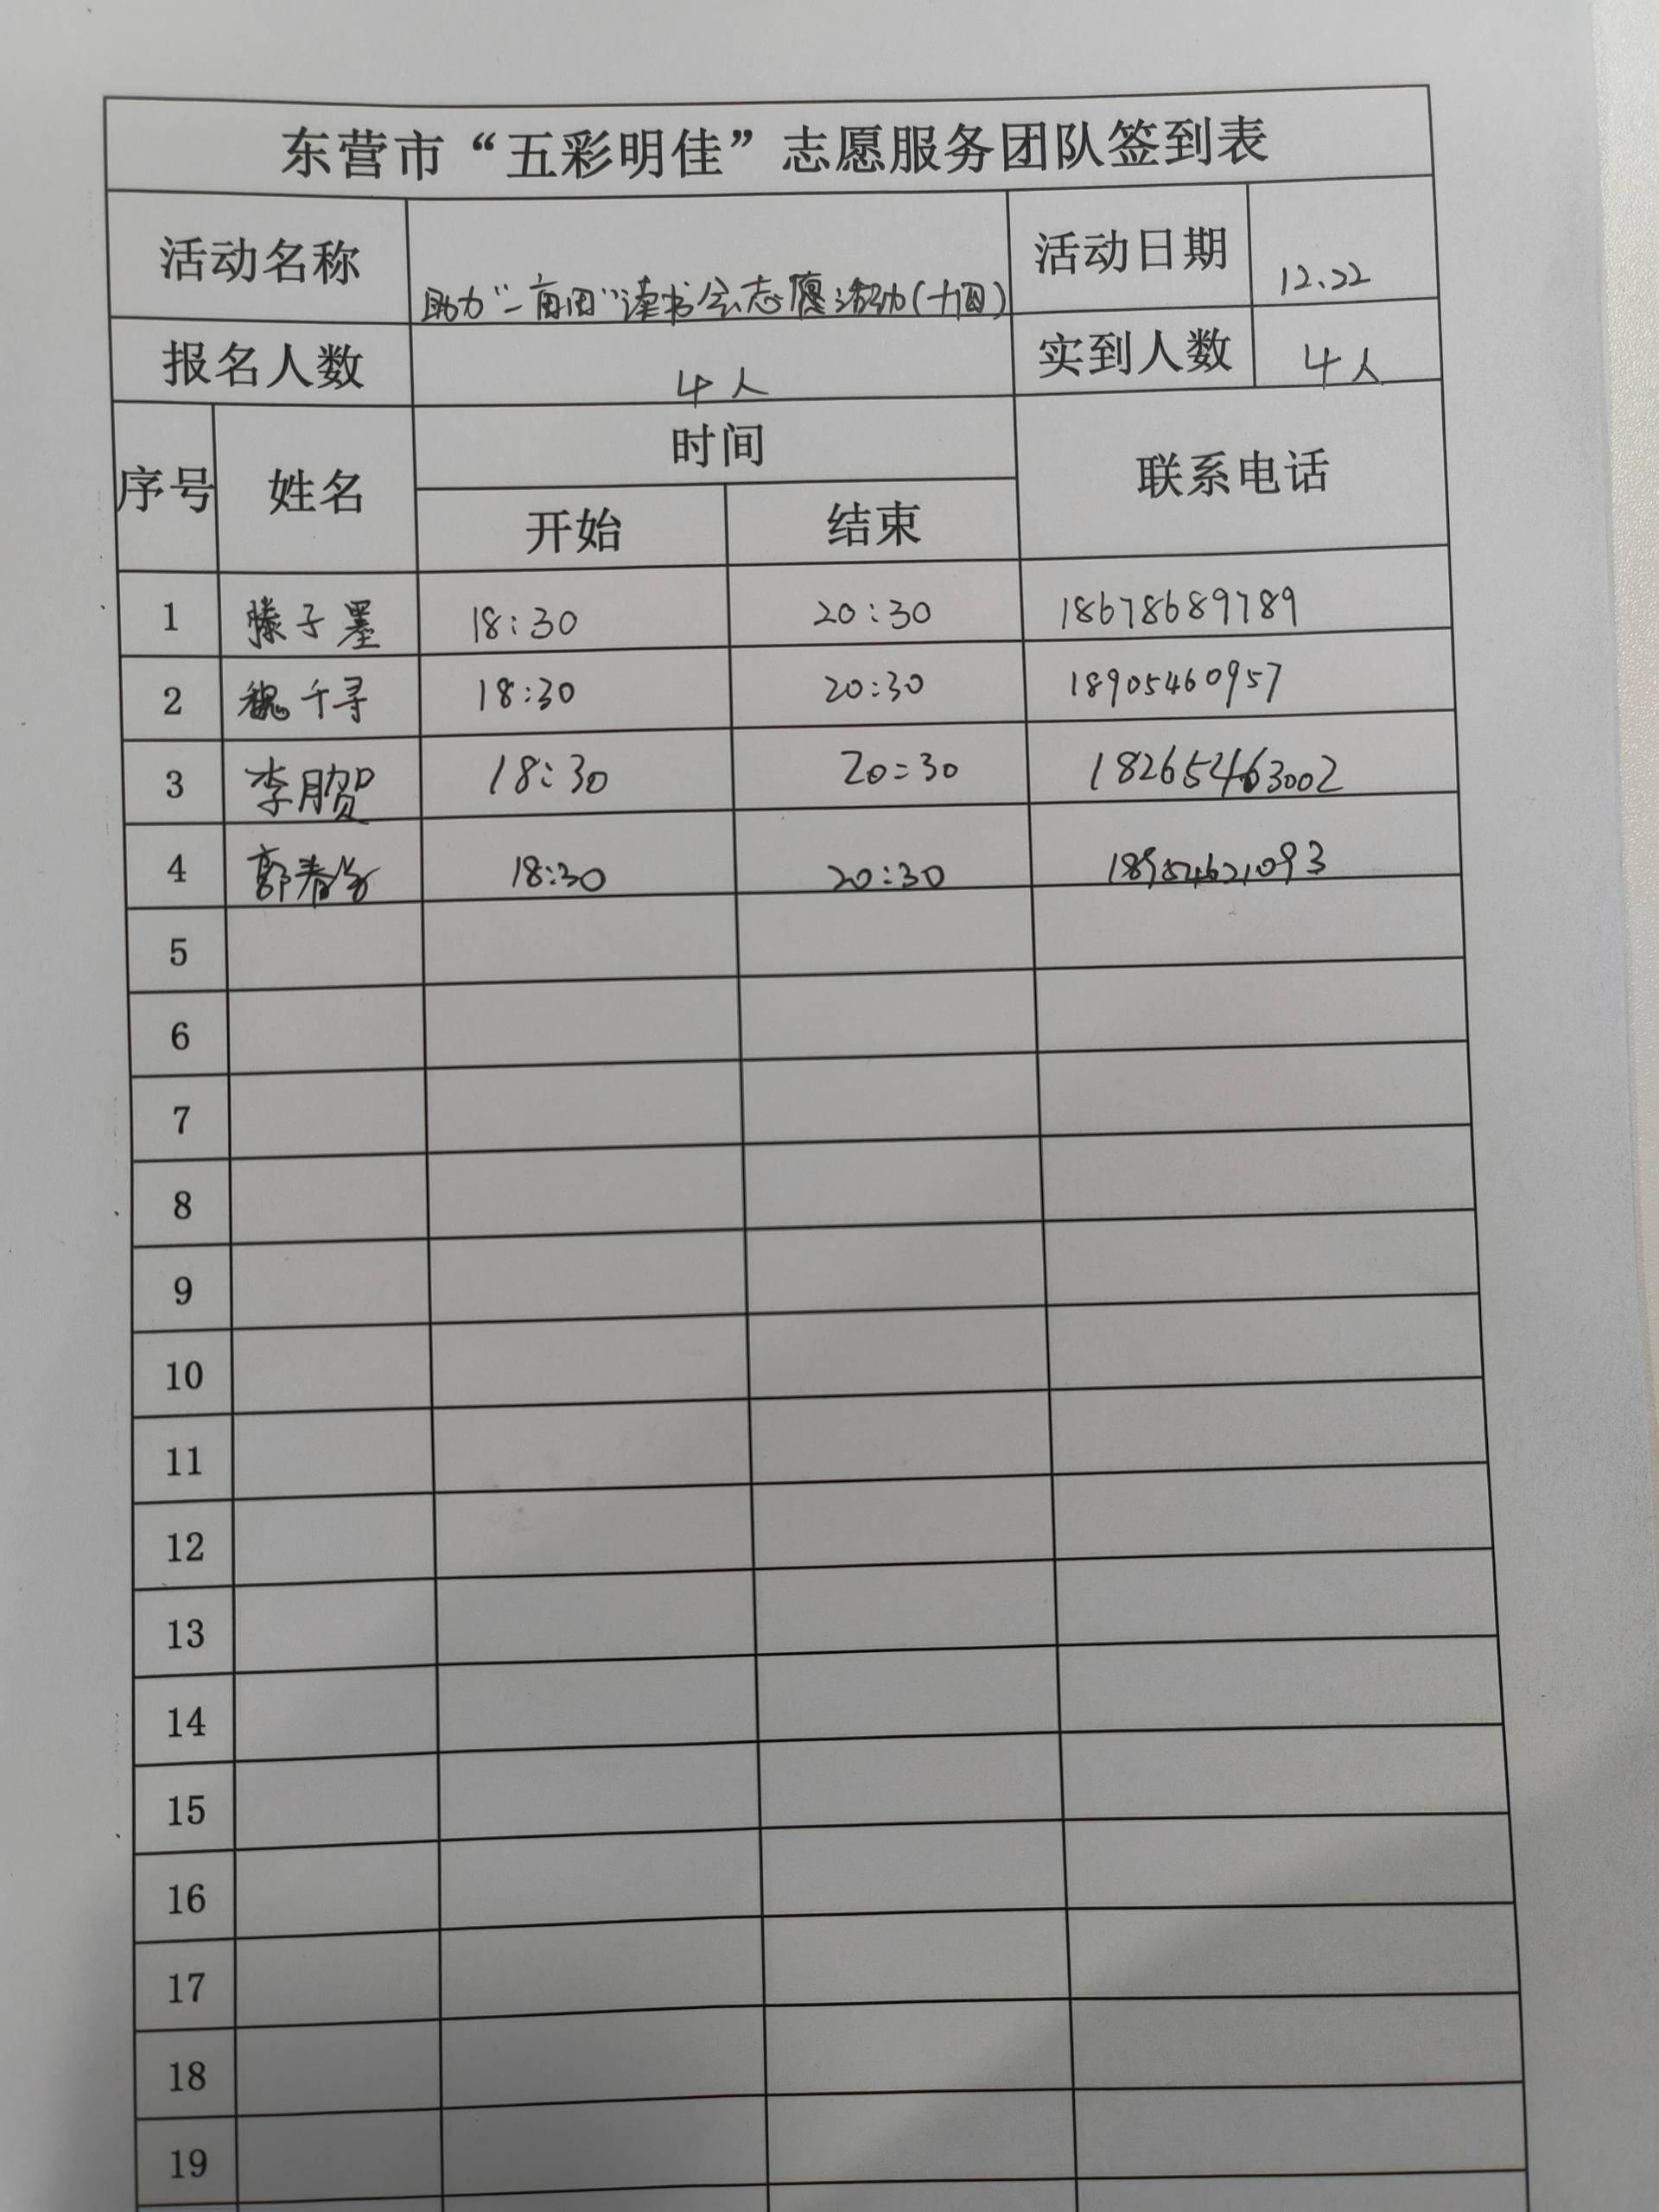 东营市“五彩明佳”志愿服务团队签到表
活动名称 助力“一亩田”读书会志愿活动(十四) 活动日期 12.22
报名人数 4人 实到人数 4人
序号 姓名 时间 联系电话
开始 结束
1 滕子墨 18:30 20:30 18678689789
2 魏千寻 18:30 20:30 18905460957
3 李朋贺 18:30 20:30 18265463002
4 18:30 20:30
5
6
7
8
9
10
11
12
13
14
15
16
17
18
19